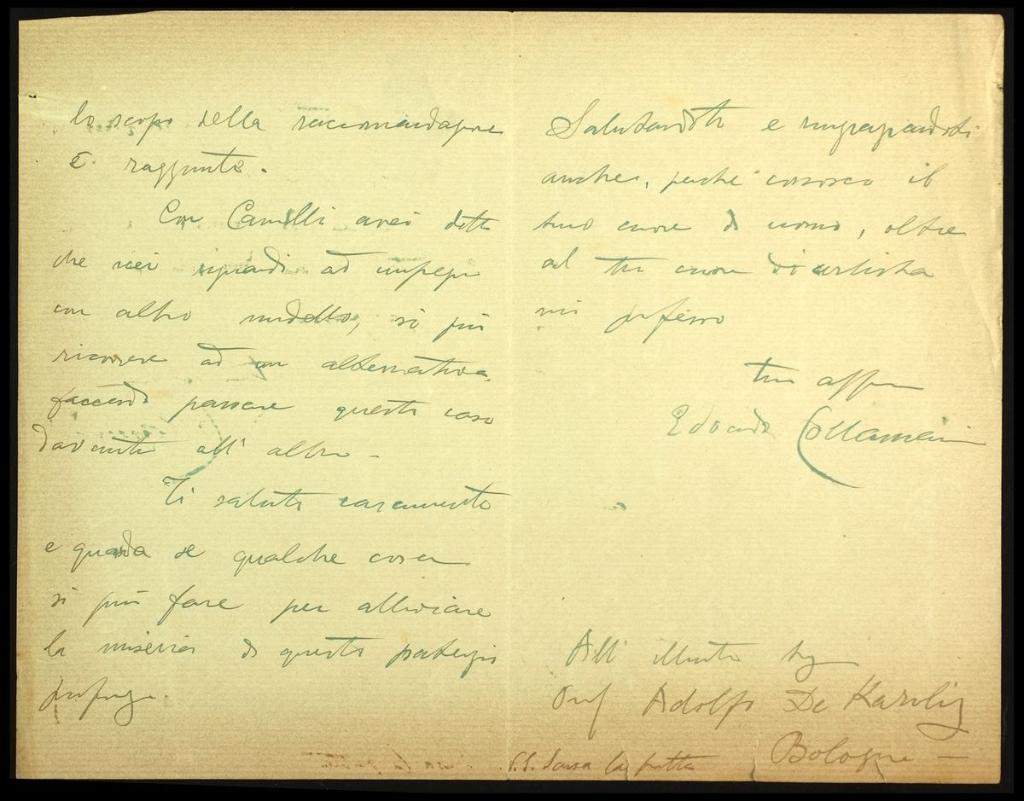 lo scopo della raccomandazione
è raggiunto.
Con Camilli avrei detto
che nei riguardi ad
con altro modello, si può
ricorrere ad un alternativa,
facendo passare questo caso
davanti all' altro -
Ti saluto caramente
e guarda se qualche cosa
si può fare per alleviare
la miseria di questi
profughi.
Salutandoti e ringraziandoti
anche, perché conosco il
tuo cuore di uomo, oltre
al tuo cuore di artista
mi professo
tuo affmo
Edoardo Collamarini
All' illustre Sig
Prof Adolfo De Karolis
Bologna -
P.S. Scusa la fretta